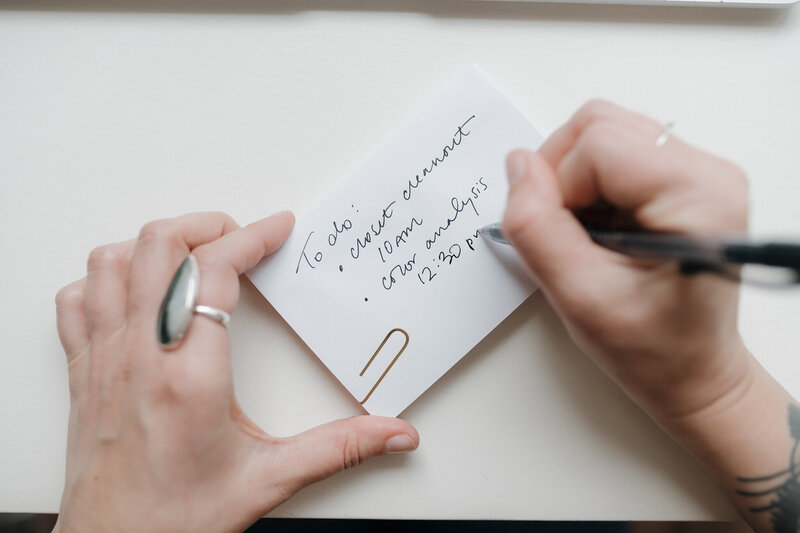 To do:
• closet cleanout
10AM
• color analysis
12:30 pm